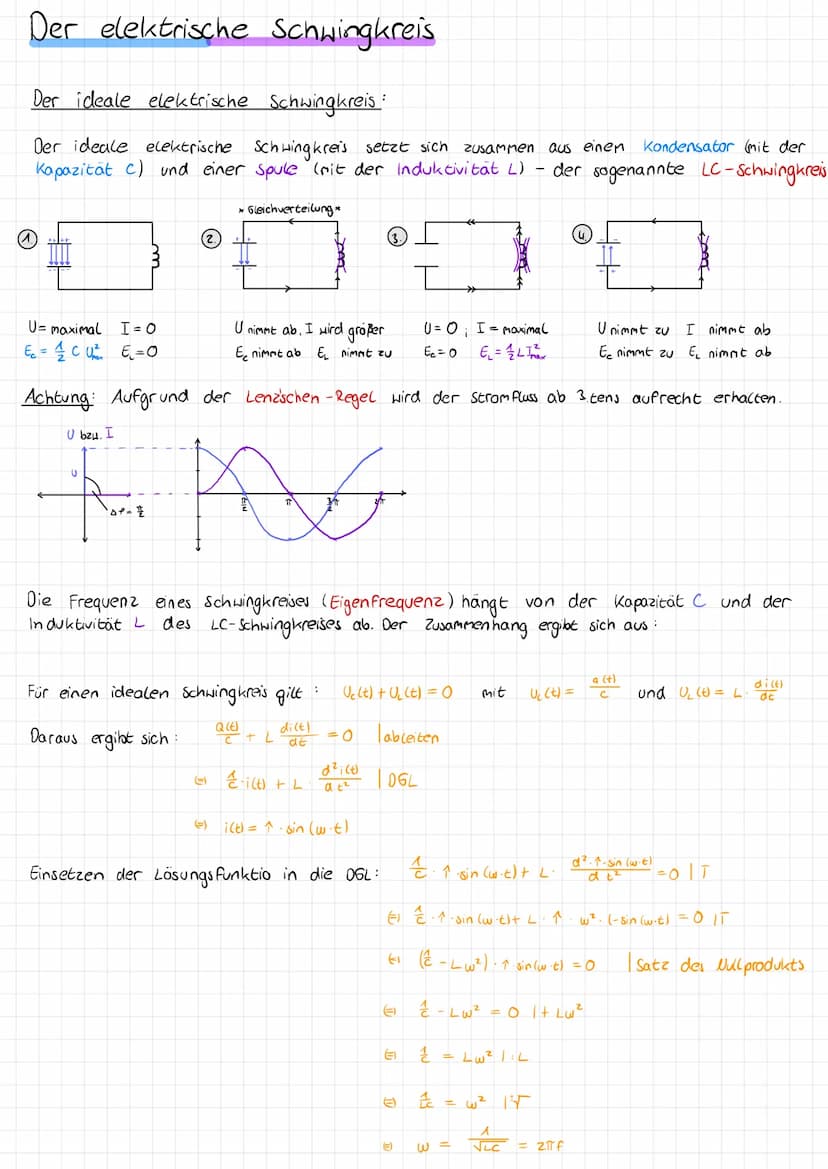 Der elektrische Schwingkreis
Der ideale elektrische Schwingkreis:
Der ideale elektrische Schwingkreis setzt sich zusammen aus einem Kondensator (mit der
Kapazität C) und einer Spule (mit der Induktivität L) - der sogenannte LC-Schwingkreis
* Gleichverteilung *
1. 2. 3. 4.
U = maximal I = 0 U nimmt ab, I wird größer U = 0 ; I = maximal U nimmt zu I nimmt ab
E_C = 1/2 C U²max E_L = 0 E_C nimmt ab E_L nimmt zu E_C = 0 E_L = 1/2 L I²max E_C nimmt zu E_L nimmt ab
Achtung: Aufgrund der Lenz'schen-Regel wird der Stromfluss ab 3.tens aufrecht erhalten.
U bzw. I
U
Δφ = π/2
π/2 π 3/2 π 2π
Die Frequenz eines Schwingkreises (Eigenfrequenz) hängt von der Kapazität C und der
Induktivität L des LC-Schwingkreises ab. Der Zusammenhang ergibt sich aus:
Für einen idealen Schwingkreis gilt : U_C(t) + U_L(t) = 0 mit U_L(t) = Q(t)/C und U_L(t) = L · di(t)/dt
Daraus ergibt sich : Q(t)/C + L di(t)/dt = 0 | ableiten
(=) 1/C · i(t) + L · d²i(t)/dt² | DGL
(=) i(t) = ↑ · sin (ω·t)
Einsetzen der Lösungsfunktio in die DGL: 1/C · ↑ · sin (ω·t) + L · d²·↑·sin (ω·t)/dt² = 0 | T
(=) 1/C · ↑ · sin (ω·t) + L · ↑ · ω² · (-sin (ω·t) = 0 | T
(=) (1/C - Lω²) · ↑ · sin(ω·t) = 0 | Satz des Nullprodukts
(=) 1/C - Lω² = 0 | + Lω²
(=) 1/C = Lω² | : L
(=) 1/LC = ω² | √
(=) ω = 1/√LC = 2πf